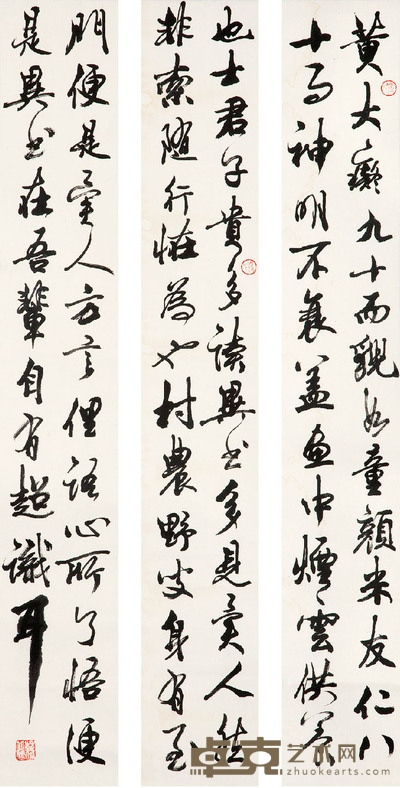 黄大癡九十而貌如童顏米友仁八
十餘神明不衰盖畫中煙雲供养
也士君子貴多讀異书多見異人然
非索隨行怪為也村農野叟身有至
便是異人方言俚語心所了悟便
是異书在吾輩自有超識耳
卓克艺术网
www.zhuokearts.com